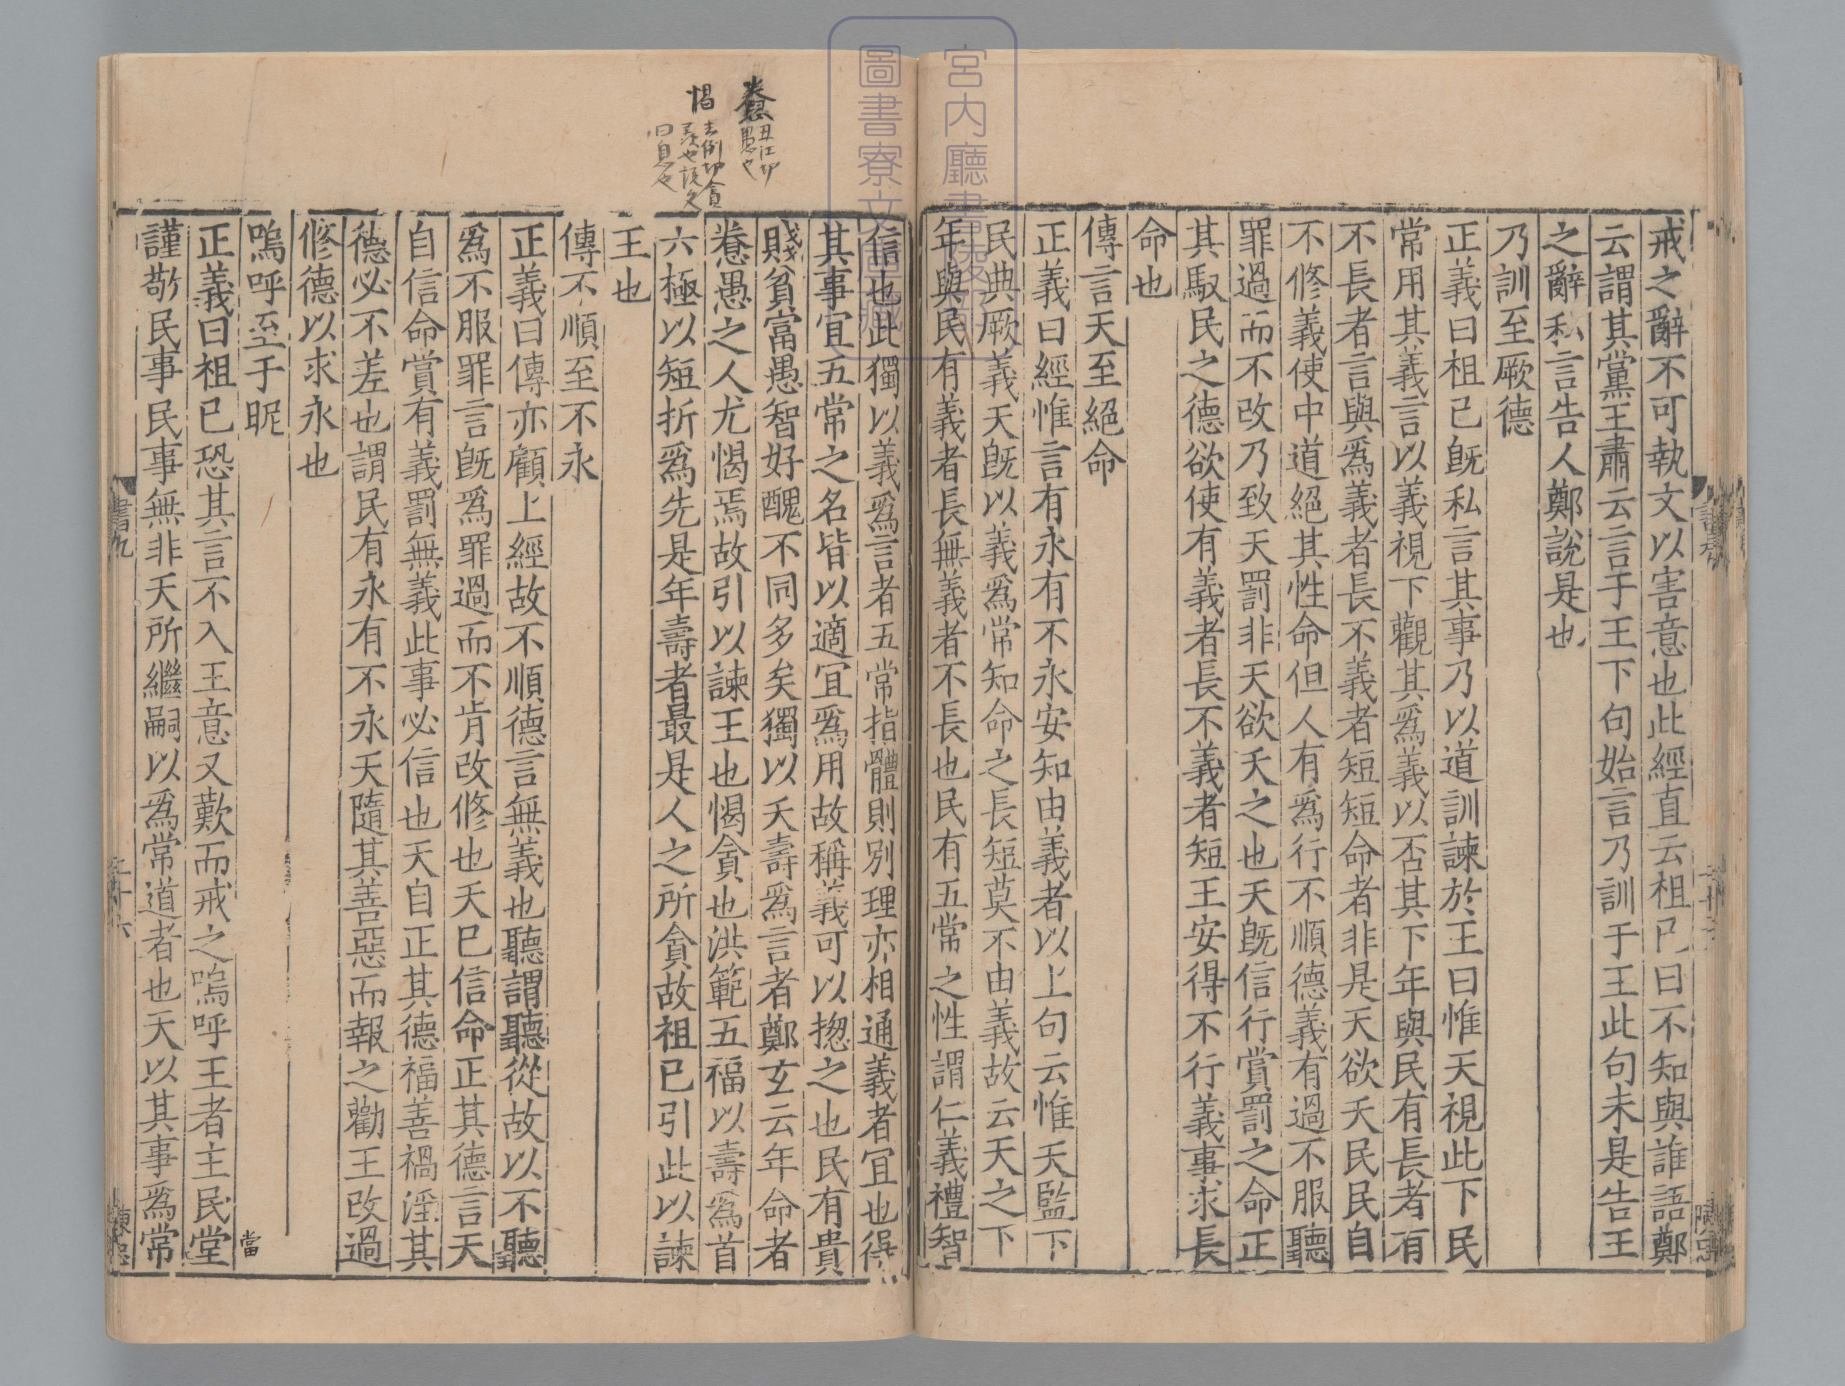 戒之辭不可執文以害意也此經直云祖己曰不知與誰語鄭
云謂其黨王肅云言于王下句始言乃訓于王此句未是告王
之辭私言告人鄭說是也
乃訓至厥德
正義曰祖己旣私言其事乃以道訓諫於王曰惟天視此下民
常用其義言以義視下觀其爲義以否其下年與民有長者有
不長者言與爲義者長不義者短短命者非是天欲夭民民自
不修義使中道絕其性命但人有爲行不順德義有過不服聽
罪過而不改乃致天罰非天欲夭之也天旣信行賞罰之命正
其馭民之德欲使有義者長不義者短王安得不行義事求長
命也
傳言天至絕命
正義曰經惟言有永有不永安知由義者以上句云惟天監下
民典厥義天旣以義爲常知命之長短莫不由義故云天之下
年與民有義者長無義者不長也民有五常之性謂仁義禮智
信也此獨以義爲言者五常指體則別理亦相通義者冝也得
其事冝五常之名皆以適冝爲用故稱義可以揔之也民有貴
賤貧富愚智好醜不同多矣獨以夭壽爲言者鄭玄云年命者
惷愚之人尤愒焉故引以諫王也愒貪也洪範五福以壽爲首
六極以短折爲先是年壽者最是人之所貪故祖己引此以諫
王也
傳不順至不永
正義曰傳亦顧上經故不順德言無義也聽謂聽從故以不聽
爲不服罪言旣爲罪過而不肯改修也天已信命正其德言天
自信命賞有義罰無義此事必信也天自正其德福善禍淫其
德必不差也謂民有永有不永天隨其善惡而報之勸王改過
修德以求永也
嗚呼至于昵
正義曰祖己恐其言不入王意又歎而戒之嗚呼王者主民堂
當
謹敬民事民事無非天所繼嗣以爲常道者也天以其事爲常
惷 丑江切
愚也
愒 去例切貪
羨也說文
曰息也
書九
二十六
宮內廳書陵部
圖書寮文庫藏